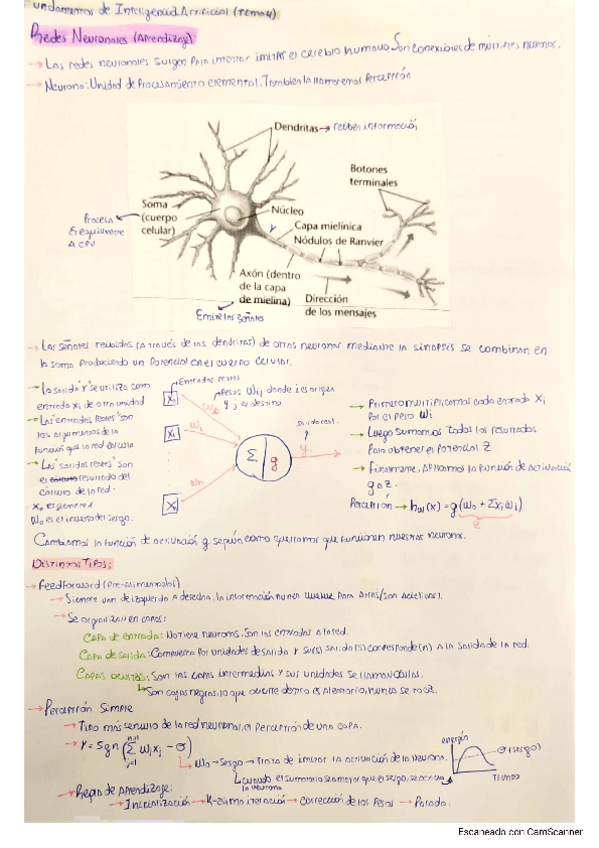 Fundamentos de Inteligencia Artificial (Tema 4)
Redes Neuronales (Aprendizaje)
→ Las redes neuronales surgen para intentar imitar el cerebro humano. Son conexiones de múltiples neuronas.
→ Neurona: Unidad de procesamiento elemental. También la llamaremos Perceptrón
Dendritas → reciben información
Botones
terminales
Soma
(cuerpo
celular)
Procesa
Es equivalente
A CPU
Núcleo
Capa mielínica
Nódulos de Ranvier
Axón (dentro
de la capa
de mielina)
Dirección
de los mensajes
Emite las señales
→ Las señales recibidas (a través de las dendritas) de otras neuronas mediante la sinapsis se combinan en
la soma produciendo un potencial en el cuerpo celular.
→ La salida "y" se utiliza como
entrada xi de otra unidad
→ Las "entradas reales" son
los argumentos de la
función que la red calcula
→ Las "salidas reales" son
el resultado del
cálculo de la red.
· X₀ es general
W₀ es el inverso del sesgo.
Entradas reales
X₀
Pesos Wij donde i es origen
y j es destino
W₀
X₁
W₁
Xn
Wn
Σ g
salida real
y
→ Primero multiplicamos cada entrada Xi
por el peso Wi
→ Luego sumamos todos los resultados
para obtener el potencial Z
→ Finalmente, aplicamos la función de activación
g a z.
Perceptrón → hw(x) = g(w₀ + Σxiwi)
z
Cambiamos la función de activación g según como queramos que funcionen nuestras neurona.
Distintos Tipos:
→ Feedforward (Pre-alimentadas)
→ Siempre van de izquierda a derecha, la información nunca vuelve para atrás (son acíclicas).
→ Se organizan en capas:
Capa de entrada: No tiene neuronas. Son las entradas a la red.
Capa de salida: Compuesta por unidades de salida y su(s) salida(s) corresponde(n) a la salida de la red.
Capas ocultas: Son las capas intermedias y sus unidades se llaman ocultas.
↳ Son cajas negras, lo que ocurre dentro es aleatorio, nunca se
→ Perceptrón Simple
→ Tipo más sencillo de la red neuronal, el perceptrón de una capa.
→ Y = Sgn (Σ wi xj − θ)
n+1
j=1
↳ W₀ → Sesgo → Trata de imitar la activación de la neurona.
↳ cuando el sumatorio sea mayor que el sesgo, se activa
la neurona
energía
θ (sesgo)
Tiempo
→ Regla de Aprendizaje:
→ Inicialización → K-ésima iteración → Corrección de los pesos → Parada.
Escaneado con CamScanner